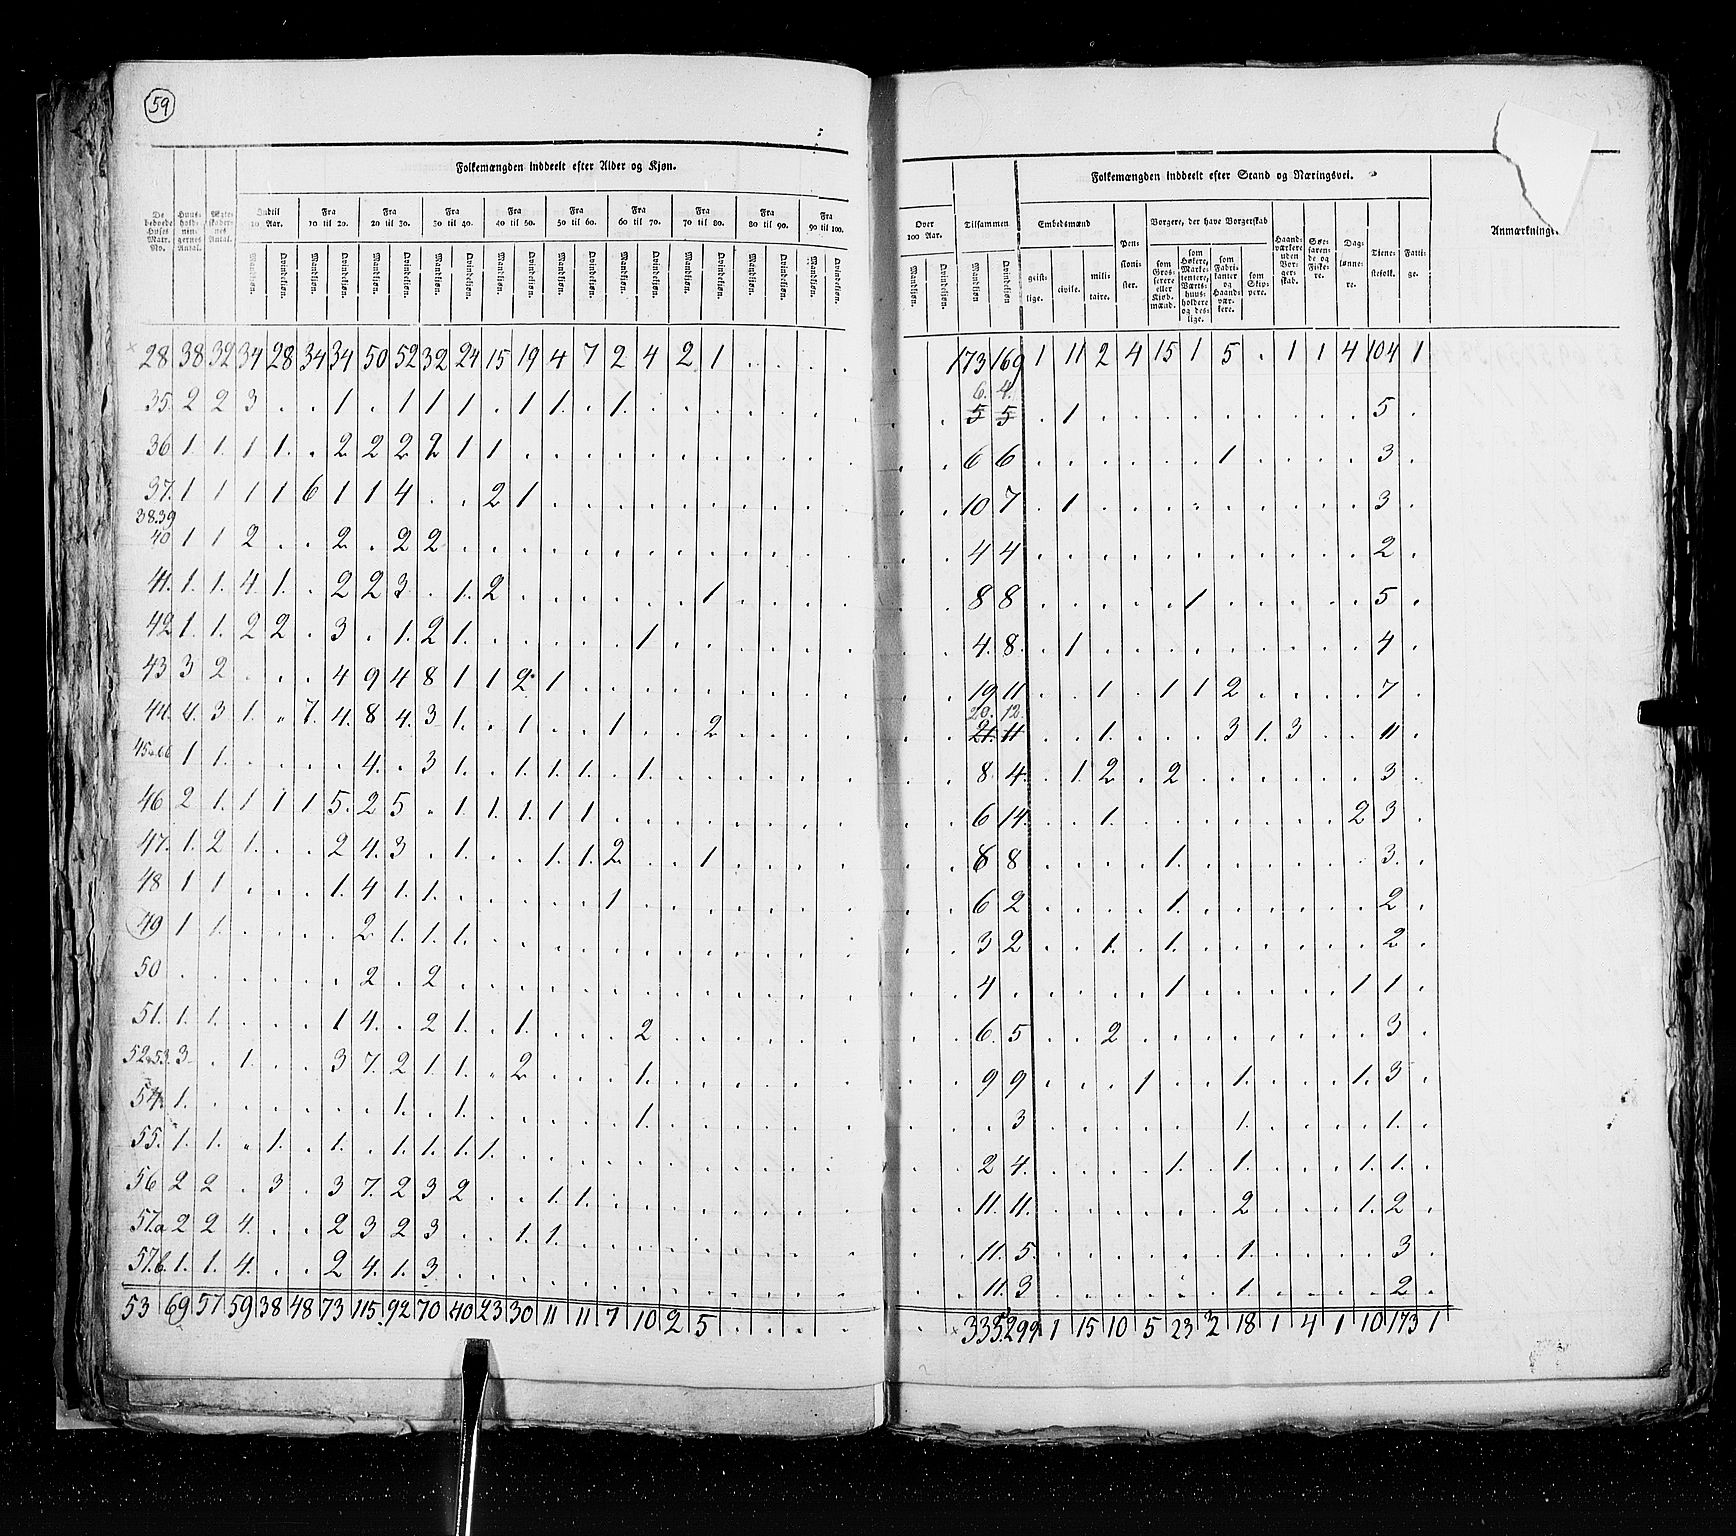 59
Folkemængden inddeelt efter Alder og Kjøn.
De beboede Huses Matr. No. | Huusholdningernes Antal. | Ægteskabernes Antal. | Indtil 10 Aar. | Fra 10 til 20. | Fra 20 til 30. | Fra 30 til 40. | Fra 40 til 50. | Fra 50 til 60. | Fra 60 til 70. | Fra 70 til 80. | Fra 80 til 90. | Fra 90 til 100.
Mandkjøn. Qvindekjøn. Mandkjøn. Qvindekjøn. Mandkjøn. Qvindekjøn. Mandkjøn. Qvindekjøn. Mandkjøn. Qvindekjøn. Mandkjøn. Qvindekjøn. Mandkjøn. Qvindekjøn. Mandkjøn. Qvindekjøn. Mandkjøn. Qvindekjøn. Mandkjøn. Qvindekjøn.
28 38 32 34 28 34 34 50 52 32 24 15 19 4 7 2 4 2 1 . . . .
35. 2 2 3 . . 1 . 1 1 1 . 1 1 . 1 . . . . . . .
36 1. 1. 1 1. . 2 2 2 2 1 1 . . . . . . . . . . .
37. 1 1 1 1 6 1 1 4 . . 2 1 . . . . . . . . . .
38.39
40 1 1 2 . . 2 . 2 2 . . . . . . . . . . . . .
41. 1. 1. 4 1. . 2 2 3 . 1. 2 . . . . . . 1 . . . .
42 1. 1. 2 2 . 3 . 1. 2 1. . . . . . 1 . . . . . .
43 3 2 . . . 4 9 4 8 1 1 2 1 . . . . . . . . .
44. 4. 3 1. . 7. 4. 8 4. 3 1. . 1 . . 1 . . 2 . . . .
45a66 1 1 . . . . 4. . 3 1. . 1. 1. 1. . 1. . . . . . .
46 2 1. 1 1 1 5. 2 5 . 1 1. 1. 1 1 . . . . . . . .
47. 1. 2 1. . . 2 4. 3 . 1. . . 1. 1. 2 . . 1 . . . .
48 1 1 . . . 1. 4 1. 1. . . . . . 1 . . . . . . .
49 1 1. . . . . 2 1. 1. 1. . . . . . . . . . . . .
50 . . . . . . 2 . 2 . . . . . . . . . . . . .
51. 1. 1. . . . 1 4. . 2 1. . 1. . . . 2 . . . . . .
52a53. 3 . 1. . . 3 7. 2 1. 1. . 2 . . . 1. . . . . . .
54. 1. . . . . . . 1. . 1. . . . . . 1. . . . . . .
55. 1. 1. . 1. . 1. . 1. 1. 1. 1. . . . . . . . . . . .
56 2 2 . 3 . 3 7. 2 3 2 . . 1. 1. . . . . . . . .
57.a 2 2 4. . . 2 3 2 3 . . 1. 1. . . . . . . . . .
57.b. 1. 1. 4. . . 2 4. 1. 3 . . . . . . . . . . . . .
53 69 57 59 38 48 73 115. 92 70 40 23 30 11 11 7 10 2 5 . . . .
Over 100 Aar. | Tilsammen | Folkemængden inddeelt efter Stand og Næringsvei. | Anmærkninge
Embedsmænd | Pensionister. | Borgere, der have Borgerskab | Haandværkere uden Borgerskab. | Søefarende og Fiskere. | Daglønnere. | Tienestefolk. | Fattige.
Mandkjøn. Qvindekjøn. Mandkjøn Qvindekjøn. geistlige. civile. militaire. som Grosserere eller Kjøbmænd. som Høkere, Marketentere, Værtshuusholdere og deslige. som Fabrikanter og Haandværkere. som Skippere.
173 169 1 11 2 4 15 1 5 . 1 1 4 104 1
6. 4.
5 5 . 1 . . . . . . . . . 5 .
6 6 . . . . . . 1 . . . . 3 .
10 7 . 1 . . . . . . . . . 3 .
4 4 . . . . . . . . . . . 2 .
8 8 . . . . . 1 . . . . . 5 .
4. 8. . 1 . . . . . . . . . 4 .
19 11 . . 1. . 1 1 2 . . . . 7 .
20. 12.
21. 11 . . 1. . . . 3 1. 3 . . 11 .
8. 4. . 1. 2 . 2 . . . . . . 3 .
6 14. . . 1. . . . . . . . 2 3 .
8 8 . . . . 1. . . . . . . 3. .
6 2 . . . . 1. . . . . . . 2 .
3 2 . . 1. . 1. . . . . . . 2 .
4 . . . . . 1 . . . . . 1 1. .
6. 5 . . 2 . . . . . . . . 3 .
9 9 . . . 1 . . 1. . . . 1. 3 .
. 3 . . . . . . 1. . . . . 1. .
2 4. . . . . 1. . 1. . . . 1. 1. .
11. 11. . . . . . . 2 . . . 1. 2 .
11. 5. . . . . . . 1. . . . . 3 .
11. 3 . . . . . . 1. . . . . 2 .
335. 299 1 15 10 5 23 2 18 1 4 1 10 173 1